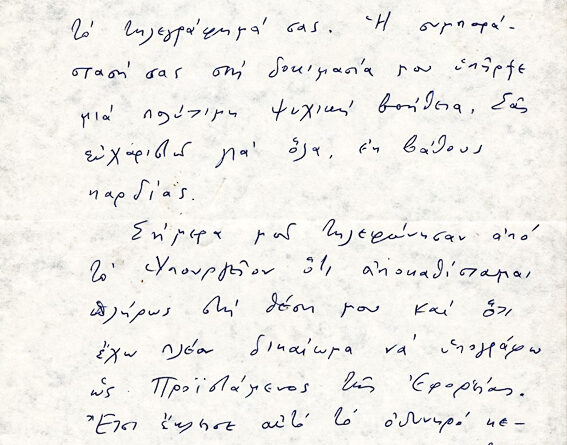 τό τηλεγράφημά σας. Ἡ συμπαρά-
στασή σας στή δοκιμασία μου ὑπῆρξε
μιά πολύτιμη ψυχική βοήθεια. Σᾶς
εὐχαριστῶ γιά ὅλα, ἐκ βάθους
καρδίας.
Σήμερα μοῦ τηλεφώνησαν ἀπό
τό Ὑπουργεῖον ὅτι ἀποκαθίσταμαι
πλήρως στή θέση μου καί ὅτι
ἔχω πλέον δικαίωμα νά ὑπογράφω
ὡς Προϊστάμενος τῆς Ἐφορείας.
Ἔτσι ἔκλεισε αὐτό τό ὀδυνηρό κε-